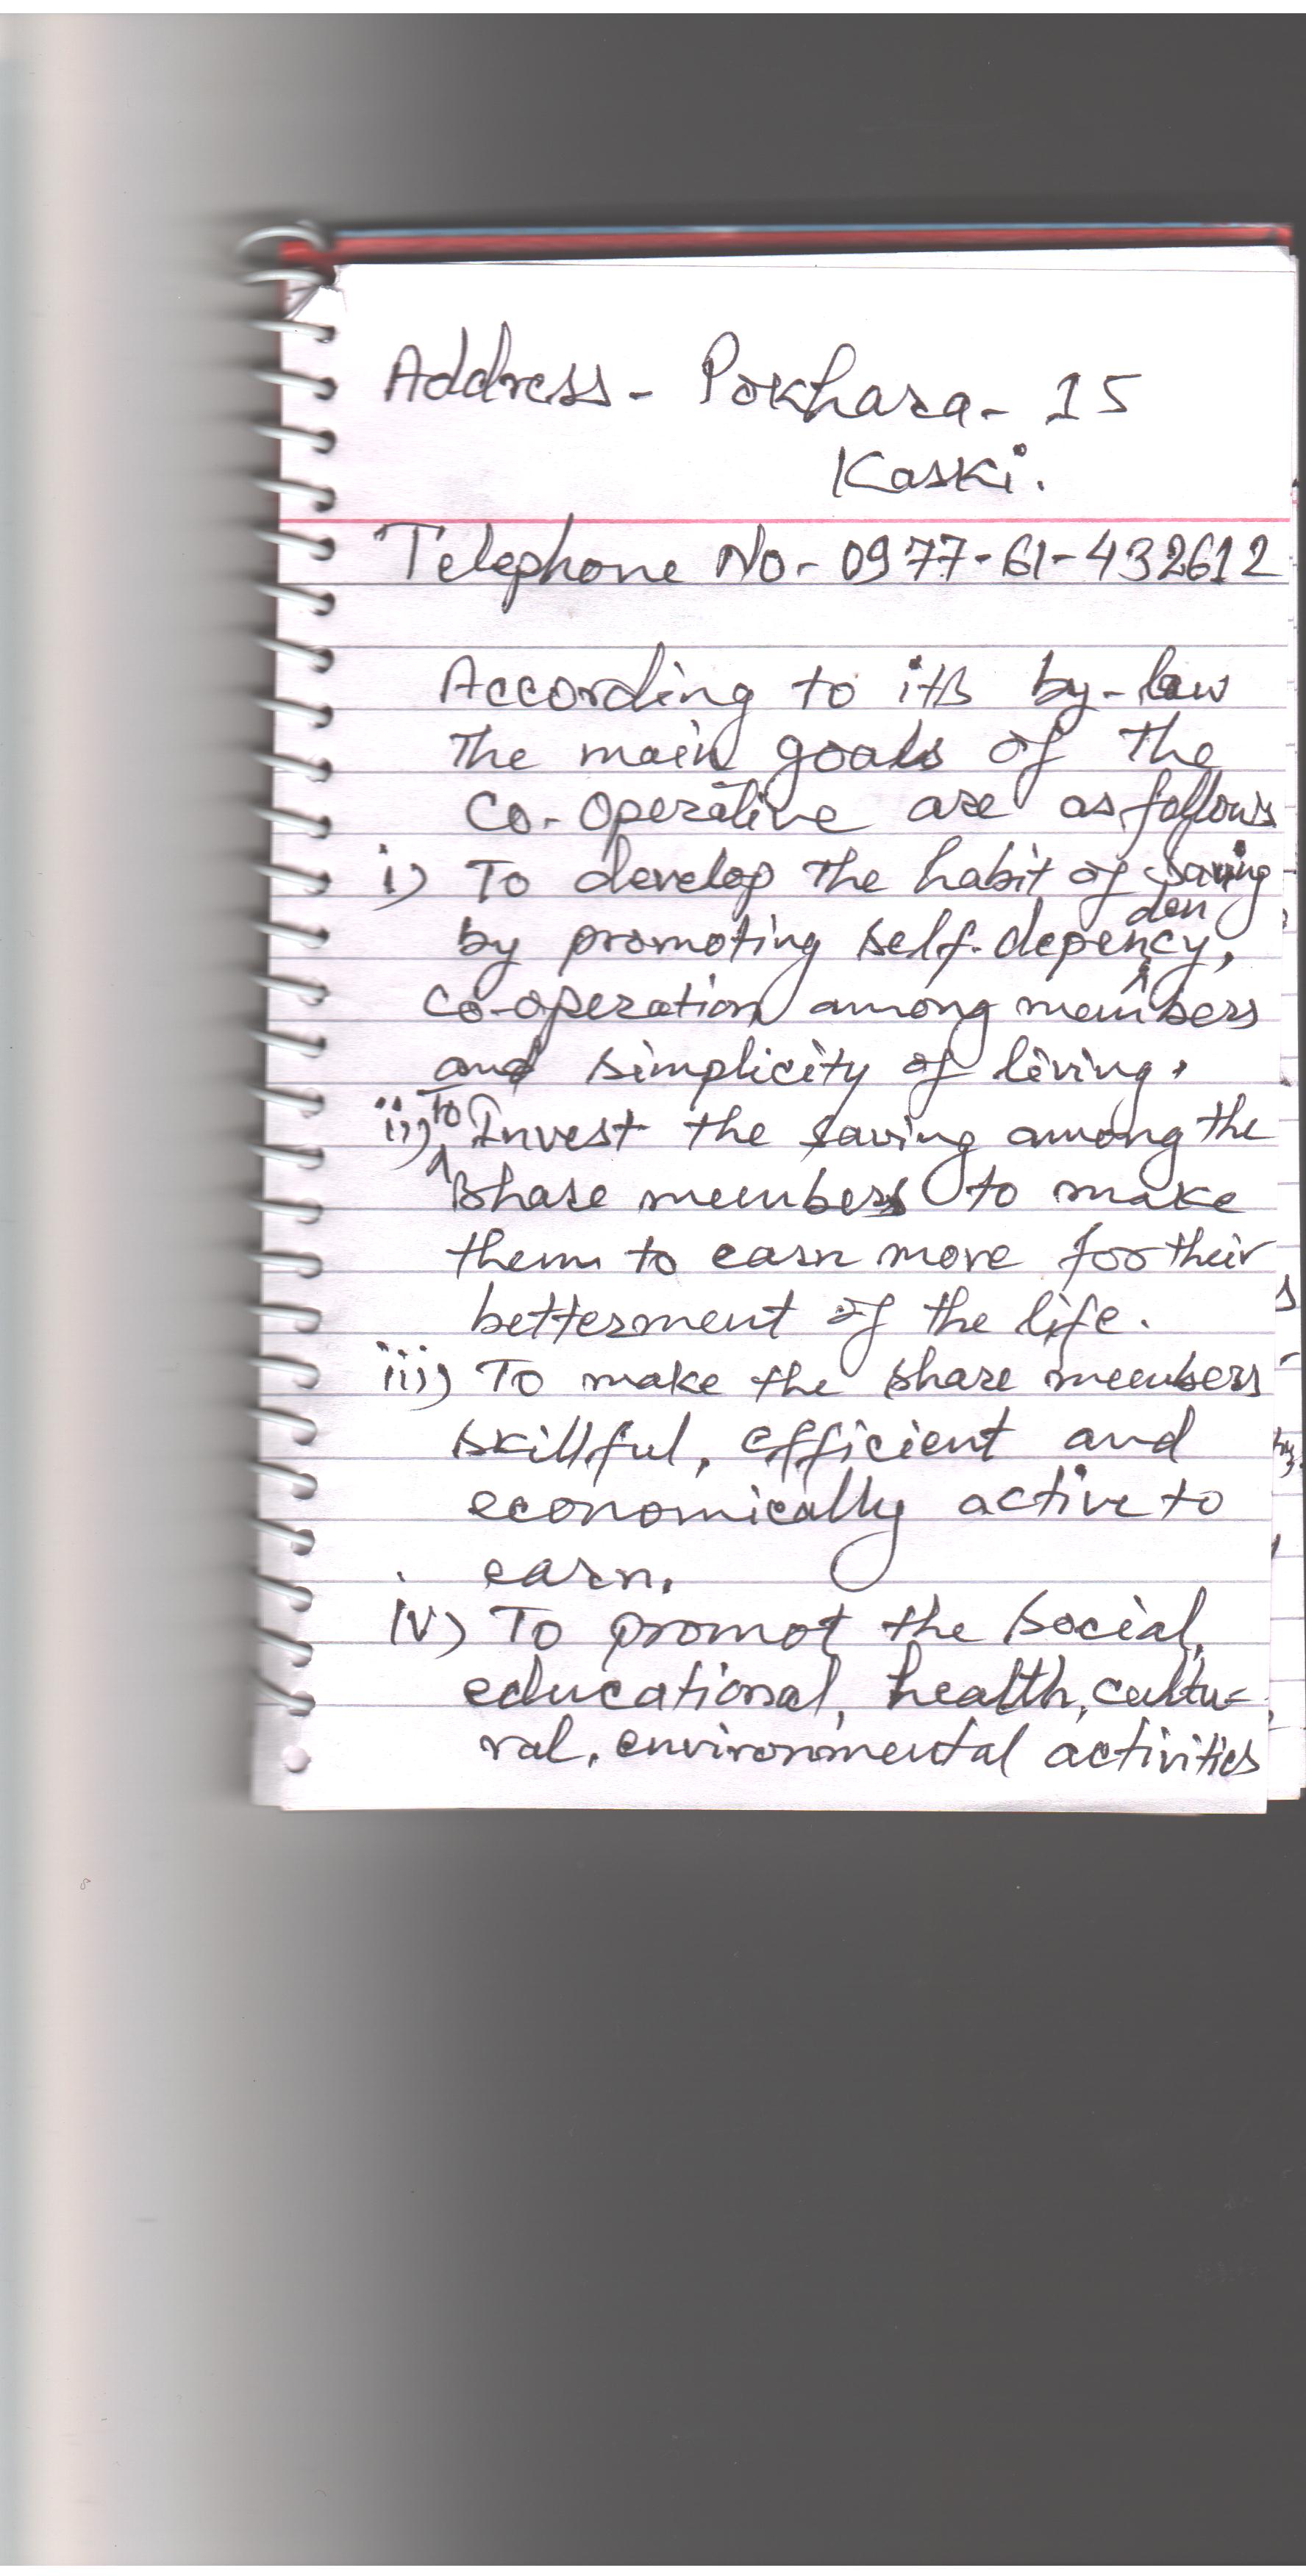 Address - Pokhara - 15
Kaski.
Telephone No - 0977-61-432612
According to its by-law
The main goals of the
Co-operative are as follows
i) To develop the habit of saving
by promoting self-dependency,
co-operation among members
and simplicity of living.
ii) To Invest the saving among the
share members to make
them to earn more for their
betterment of the life.
iii) To make the share members
skillful, efficient and
economically active to
earn.
iv) To promot the social,
educational, health, cultu-
ral, environmental activities